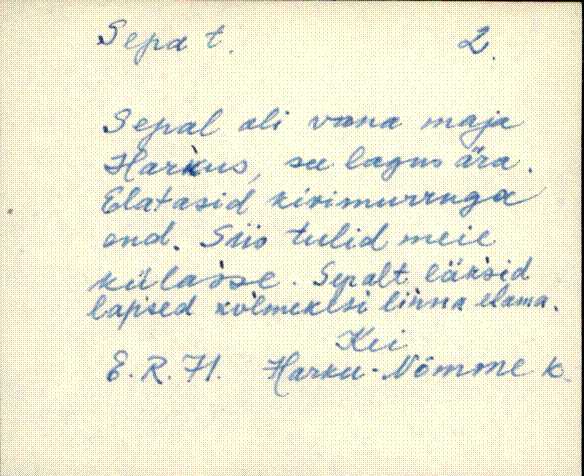 Sepa t. 2.
Sepal oli vana maja
Harkus, see lagus ära.
Elatasid kivimurruga
end. Siis tulid meie
külasse. Sepalt läksid
lapsed kolmekesi linna elama.
Kei
E.R.71. Harku-Nõmme k.